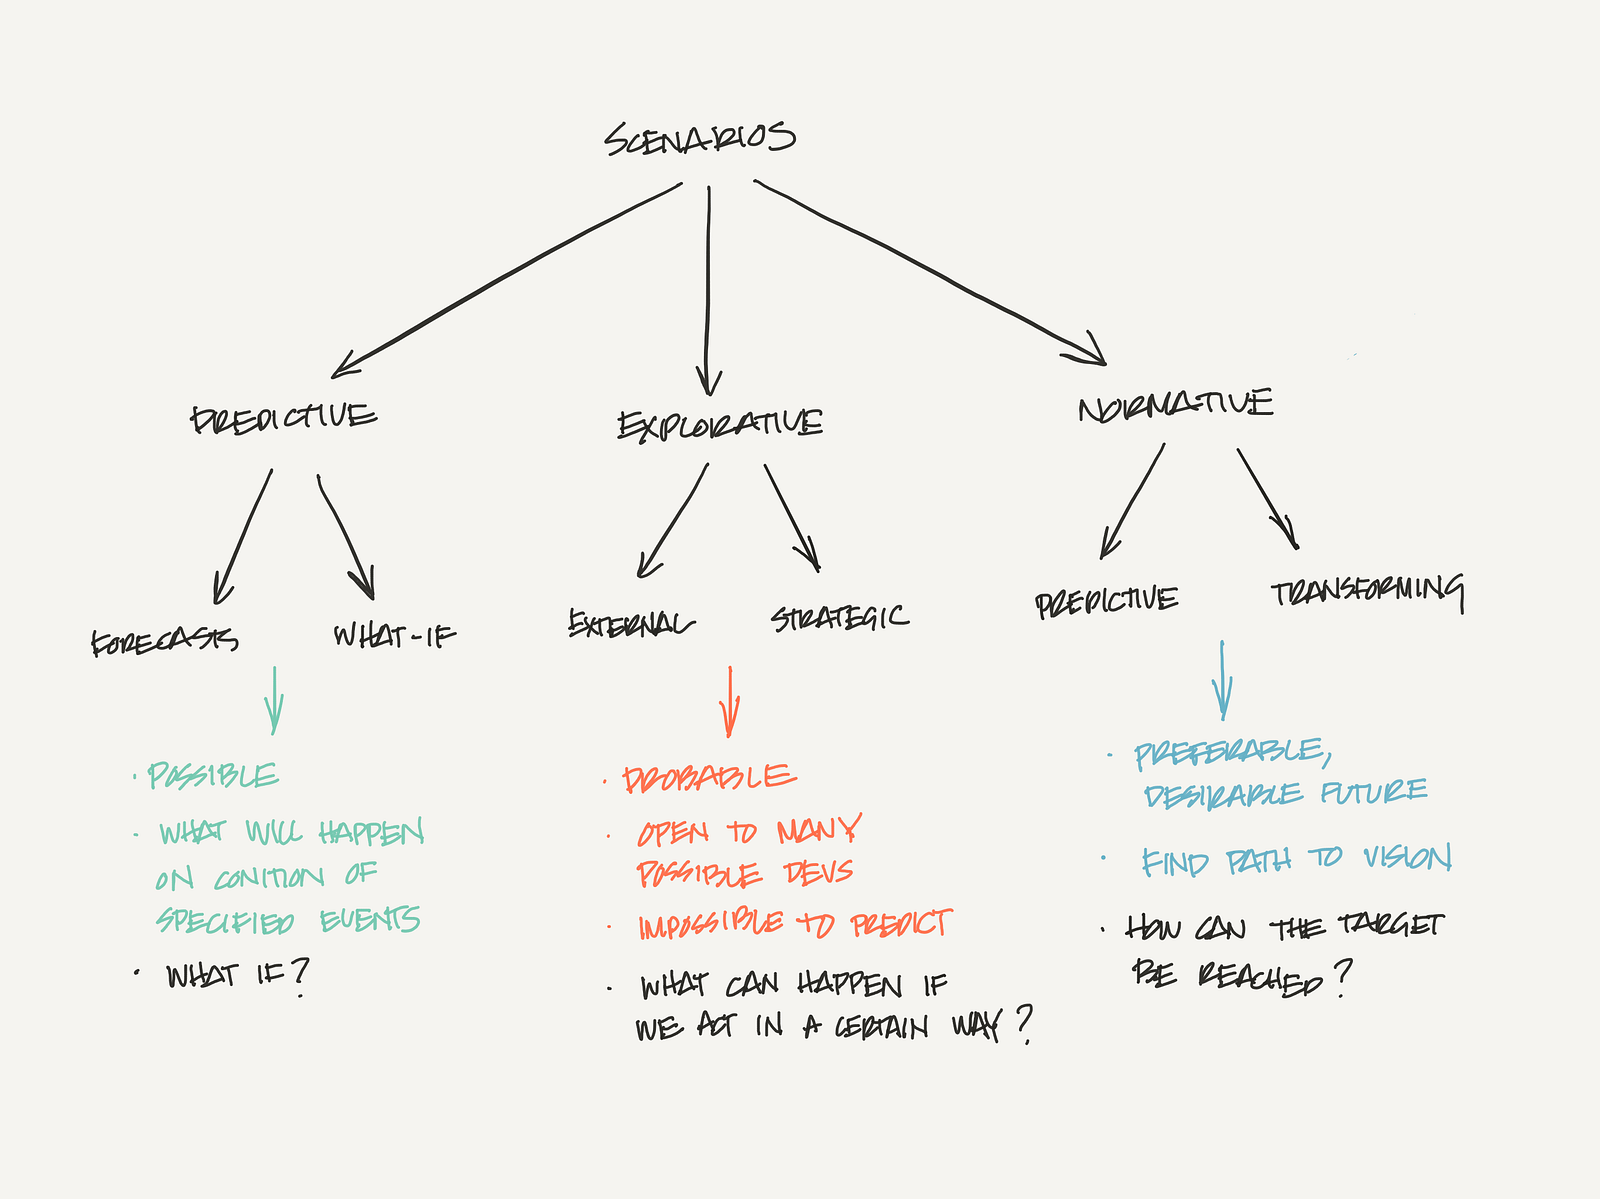 SCENARIOS
PREDICTIVE
EXPLORATIVE
NORMATIVE
FORECASTS
WHAT-IF
EXTERNAL
STRATEGIC
PREDICTIVE
TRANSFORMING
· POSSIBLE
· WHAT WILL HAPPEN
ON CONITION OF
SPECIFIED EVENTS
· WHAT IF?
· PROBABLE
· OPEN TO MANY
POSSIBLE DEVS
· IMPOSSIBLE TO PREDICT
· WHAT CAN HAPPEN IF
WE ACT IN A CERTAIN WAY?
· PREFERABLE,
DESIRABLE FUTURE
· FIND PATH TO VISION
· HOW CAN THE TARGET
BE REACHED?